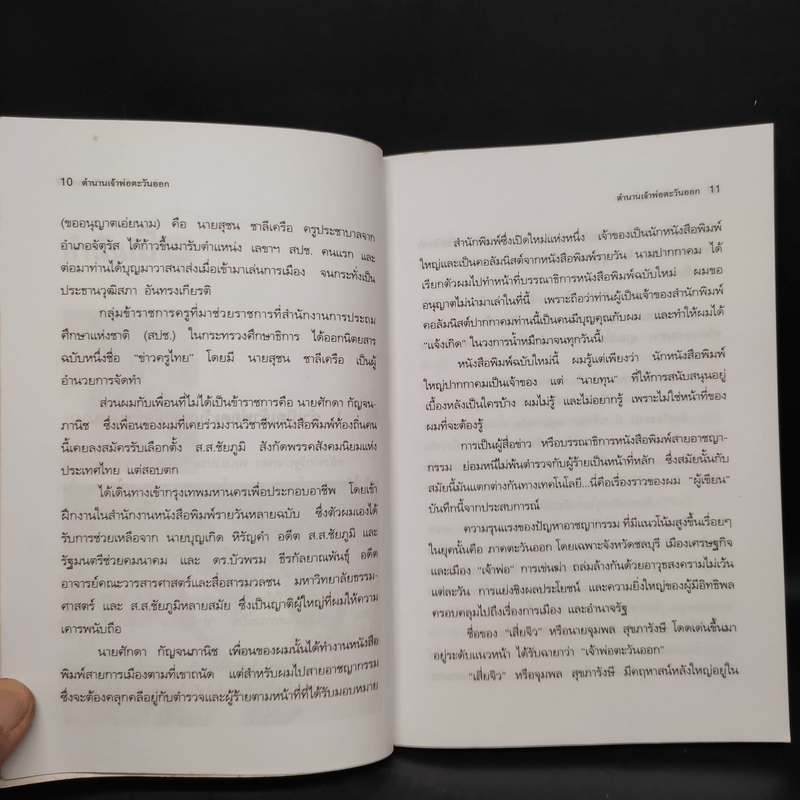 10 ตำนานเจ้าพ่อตะวันออก
(ขออนุญาตเอ่ยนาม) คือ นายสุชน ชาลีเครือ ครูประชาบาลจาก
อำเภอจัตุรัส ได้ก้าวขึ้นมารับตำแหน่ง เลขาฯ สปช. คนแรก และ
ต่อมาท่านได้บุญมาวาสนาส่งเมื่อเข้ามาเล่นการเมือง จนกระทั่งเป็น
ประธานวุฒิสภา อันทรงเกียรติ
กลุ่มข้าราชการครูที่มาช่วยราชการที่สำนักงานการประถม
ศึกษาแห่งชาติ (สปช.) ในกระทรวงศึกษาธิการ ได้ออกนิตยสาร
ฉบับหนึ่งชื่อ “ข่าวครูไทย” โดยมี นายสุชน ชาลีเครือ เป็นผู้
อำนวยการจัดทำ
ส่วนผมกับเพื่อนที่ไม่ได้เป็นข้าราชการคือ นายศักดา กัญจน-
ภานิช ซึ่งเพื่อนของผมที่เคยร่วมงานวิชาชีพหนังสือพิมพ์ท้องถิ่นคน
นี้เคยลงสมัครรับเลือกตั้ง ส.ส.ชัยภูมิ สังกัดพรรคสังคมนิยมแห่ง
ประเทศไทย แต่สอบตก
ได้เดินทางเข้ากรุงเทพมหานครเพื่อประกอบอาชีพ โดยเข้า
ฝึกงานในสำนักงานหนังสือพิมพ์รายวันหลายฉบับ ซึ่งตัวผมเองได้
รับการช่วยเหลือจาก นายบุญเกิด หิรัญคำ อดีต ส.ส.ชัยภูมิ และ
รัฐมนตรีช่วยคมนาคม และ ดร.บัวพรม ธีรกัลยาณพันธุ์ อดีต
อาจารย์คณะวารสารศาสตร์และสื่อสารมวลชน มหาวิทยาลัยธรรม-
ศาสตร์ และ ส.ส.ชัยภูมิหลายสมัย ซึ่งเป็นญาติผู้ใหญ่ที่ผมให้ความ
เคารพนับถือ
นายศักดา กัญจนภานิช เพื่อนของผมนั้นได้ทำงานหนังสือ
พิมพ์สายการเมืองตามที่เขาถนัด แต่สำหรับผมไปสายอาชญากรรม
ซึ่งจะต้องคลุกคลีอยู่กับตำรวจและผู้ร้ายตามหน้าที่ที่ได้รับมอบหมาย
ตำนานเจ้าพ่อตะวันออก 11
สำนักพิมพ์ซึ่งเปิดใหม่แห่งหนึ่ง เจ้าของเป็นนักหนังสือพิมพ์
ใหญ่และเป็นคอลัมนิสต์จากหนังสือพิมพ์รายวัน นามปากกาคม ได้
เรียกตัวผมไปทำหน้าที่บรรณาธิการหนังสือพิมพ์ฉบับใหม่ ผมขอ
อนุญาตไม่นำมาเล่าในที่นี้ เพราะถือว่าท่านผู้เป็นเจ้าของสำนักพิมพ์
คอลัมนิสต์ปากกาคมท่านนี้เป็นคนมีบุญคุณกับผม และทำให้ผมได้
“แจ้งเกิด” ในวงการน้ำหมึกมาจนทุกวันนี้!
หนังสือพิมพ์ฉบับใหม่นี้ ผมรู้แต่เพียงว่า นักหนังสือพิมพ์
ใหญ่ปากกาคมเป็นเจ้าของ แต่ “นายทุน” ที่ให้การสนับสนุนอยู่
เบื้องหลังเป็นใครบ้าง ผมไม่รู้ และไม่อยากรู้ เพราะไม่ใช่หน้าที่ของ
ผมที่จะต้องรู้
การเป็นผู้สื่อข่าว หรือบรรณาธิการหนังสือพิมพ์สายอาชญา-
กรรม ย่อมหนีไม่พ้นตำรวจกับผู้ร้ายเป็นหน้าที่หลัก ซึ่งสมัยนั้นกับ
สมัยนี้มันแตกต่างกันทางเทคโนโลยี...นี่คือเรื่องราวของผม “ผู้เขียน”
บันทึกนี้จากประสบการณ์
ความรุนแรงของปัญหาอาชญากรรม ที่มีแนวโน้มสูงขึ้นเรื่อยๆ
ในยุคนั้นคือ ภาคตะวันออก โดยเฉพาะจังหวัดชลบุรี เมืองเศรษฐกิจ
และเมือง “เจ้าพ่อ” การเข่นฆ่า ถล่มล้างกันด้วยอาวุธสงครามไม่เว้น
แต่ละวัน การแย่งชิงผลประโยชน์ และความยิ่งใหญ่ของผู้มีอิทธิพล
ครอบคลุมไปถึงเรื่องการเมือง และอำนาจรัฐ
ชื่อของ “เสี่ยจิว” หรือนายจุมพล สุขภารังษี โดดเด่นขึ้นมา
อยู่ระดับแนวหน้า ได้รับฉายาว่า “เจ้าพ่อตะวันออก”
“เสี่ยจิว” หรือจุมพล สุขภารังษี มีคฤหาสน์หลังใหญ่อยู่ใน